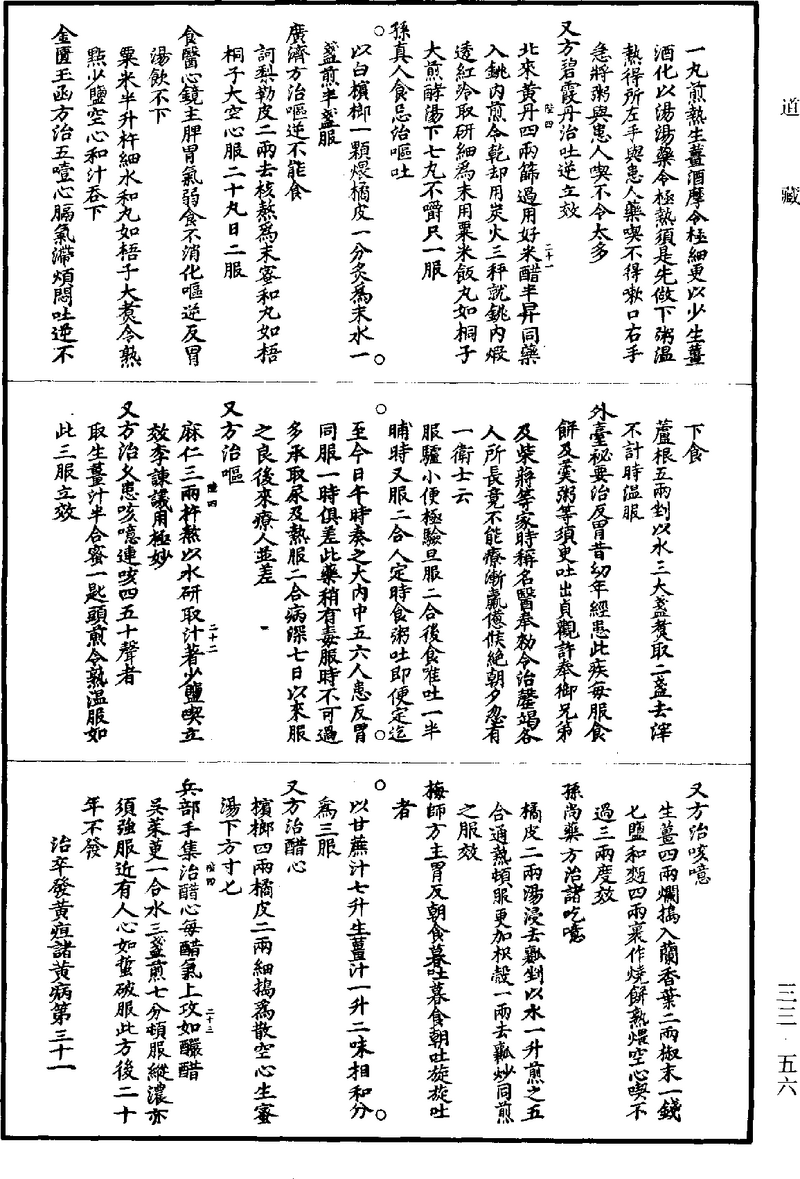 道藏
一丸煎熱生薑酒摩令極細更以少生薑
酒化以湯湯藥令極熱須是先做下粥溫
熱得所左手與患人藥喫不得嗽口右手
急將粥與患人喫不令太多
又方碧霞丹治吐逆立效
北來黃丹四兩篩過用好米醋半昇同藥
陸四 二十一
入銚內煎令乾却用炭火三秤就銚內煅
透紅冷取研細為末用粟米飯丸如桐子
大煎酵湯下七丸不嚼只一服
孫真人食忌治嘔吐
以白檳榔一顆煨橘皮一分炙為末水一
盞煎半盞服
廣濟方治嘔逆不能食
訶梨勒皮二兩去核熬為末蜜和丸如梧
桐子大空心服二十丸日二服
食醫心鏡主脾胃氣弱食不消化嘔逆反胃
湯飲不下
粟米半升杵細水和丸如梧子大煮令熟
點少鹽空心和汁吞下
金匱玉函方治五噎心膈氣滯煩悶吐逆不
下食
蘆根五兩剉以水三大盞煑取二盞去滓
不計時溫服
外臺秘要治反胃昔幼年經患此疾每服食
餅及羹粥等須臾吐出貞觀許奉御兄弟
及柴蔣等家時稱名醫奉勑令治罄竭各
人所長竟不能療漸羸憊候絕朝夕忽有
一衛士云
服驢小便極驗旦服二合後食惟吐一半
晡時又服二合人定時食粥吐即便定迄
至今日午時奏之大內中五六人患反胃
同服一時俱差此藥稍有毒服時不可過
多承取尿及熱服二合病深七日以來服
之良後來療人並差
又方治嘔
陸四 二十二
麻仁三兩杵熬以水研取汁著少鹽喫立
效李諫議用極妙
又方治久患咳噫連咳四五十聲者
取生薑汁半合蜜一匙頭煎令熟溫服如
此三服立效
又方治咳噫
生薑四兩爛搗入蘭香葉二兩椒末一錢
七鹽和麪四兩裹作燒餅熟煨空心喫不
過三兩度效
孫尚藥方治諸吃噫
橘皮二兩湯浸去瓤剉以水一升煎之五
合通熱頓服更加枳殼一兩去瓤炒同煎
之服效
梅師方主胃反朝食暮吐暮食朝吐旋旋吐
者
以甘蔗汁七升生薑汁一升二味相和分
為三服
又方治醋心
檳榔四兩橘皮二兩細搗為散空心生蜜
湯下方寸匕
陸四 二十三
兵部手集治醋心每醋氣上攻如釅醋
吳茱萸一合水三盞煎七分頓服縱濃亦
須強服近有人心如蜇破服此方後二十
年不發
治卒發黃疸諸黃病第三十一
三三·五六